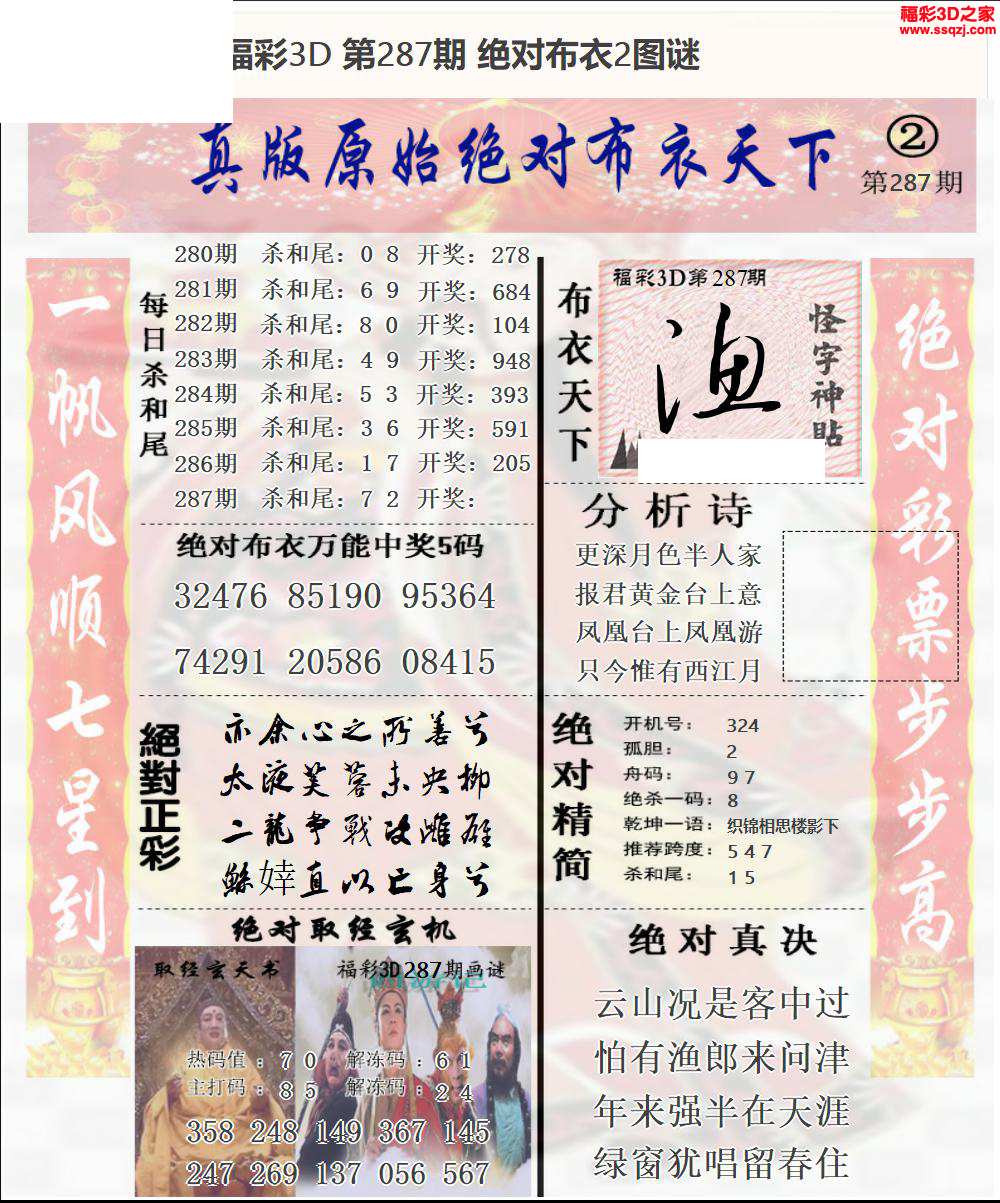 福彩3D之家
www.ssqzj.com
福彩3D 第287期 绝对布衣2图谜
真版原始绝对布衣天下
②
第287期
一帆风顺七星到
每日杀和尾
280期 杀和尾：0 8 开奖：278
281期 杀和尾：6 9 开奖：684
282期 杀和尾：8 0 开奖：104
283期 杀和尾：4 9 开奖：948
284期 杀和尾：5 3 开奖：393
285期 杀和尾：3 6 开奖：591
286期 杀和尾：1 7 开奖：205
287期 杀和尾：7 2 开奖：
绝对布衣万能中奖5码
32476 85190 95364
74291 20586 08415
絕對正彩
亦余心之所善兮
太液芙蓉未央柳
二龍争戰决雌雄
鲧婞直以亡身兮
绝对取经玄机
取经玄天书
福彩3D287期画谜
热码值：7 0 解冻码：6 1
主打码：8 5 解冻码：2 4
358 248 149 367 145
247 269 137 056 567
布衣天下
福彩3D第287期
渔
怪字神贴
分析诗
更深月色半人家
报君黄金台上意
凤凰台上凤凰游
只今惟有西江月
绝对精简
开机号：324
孤胆：2
舟码：9 7
绝杀一码：8
乾坤一语：织锦相思楼影下
推荐跨度：5 4 7
杀和尾：1 5
绝对真决
云山况是客中过
怕有渔郎来问津
年来强半在天涯
绿窗犹唱留春住
绝对彩票步步高